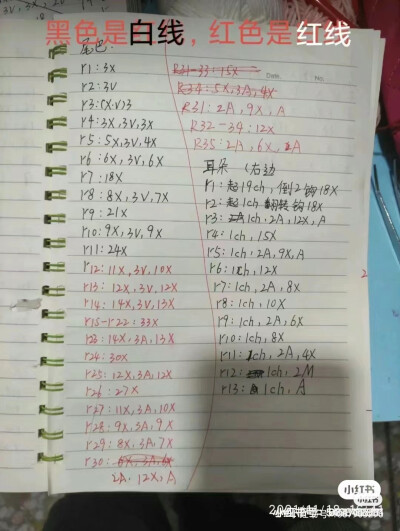 黑色是白线，红色是红线
尾巴
r1：3X
r2：3V
r3：(X,V)3
r4：3X,3V,3X
r5：5X,3V,4X
r6：6X,3V,6X
r7：18X
r8：8X,3V,7X
r9：21X
r10：9X,3V,9X
r11：24X
r12：11X,3V,10X
r13：12X,3V,12X
r14：14X,3V,13X
r15-r22：33X
r23：14X,3A,13X
r24：30X
r25：12X,3A,12X
r26：27X
r27：11X,3A,10X
r28：9X,3A,9X
r29：8X,3A,7X
r30：6X,3A,6X
2A,12X,A
R31-33：15X
R34：5X,3A,4X
R31：2A,9X,A
R32-34：12X
R35：2A,6X,A
Date. No.
耳朵（右边
r1：起19ch，倒2钩18X
r2：起1ch翻转钩18X
r3：1ch,2A,12X,A
r4：1ch,15X
r5：1ch,2A,9X,A
r6：1ch,12X
r7：1ch,2A,8X
r8：1ch,10X
r9：1ch,2A,6X
r10：1ch,8X
r11：1ch,2A,4X
r12：1ch,2M
r13：1ch,A
小红书